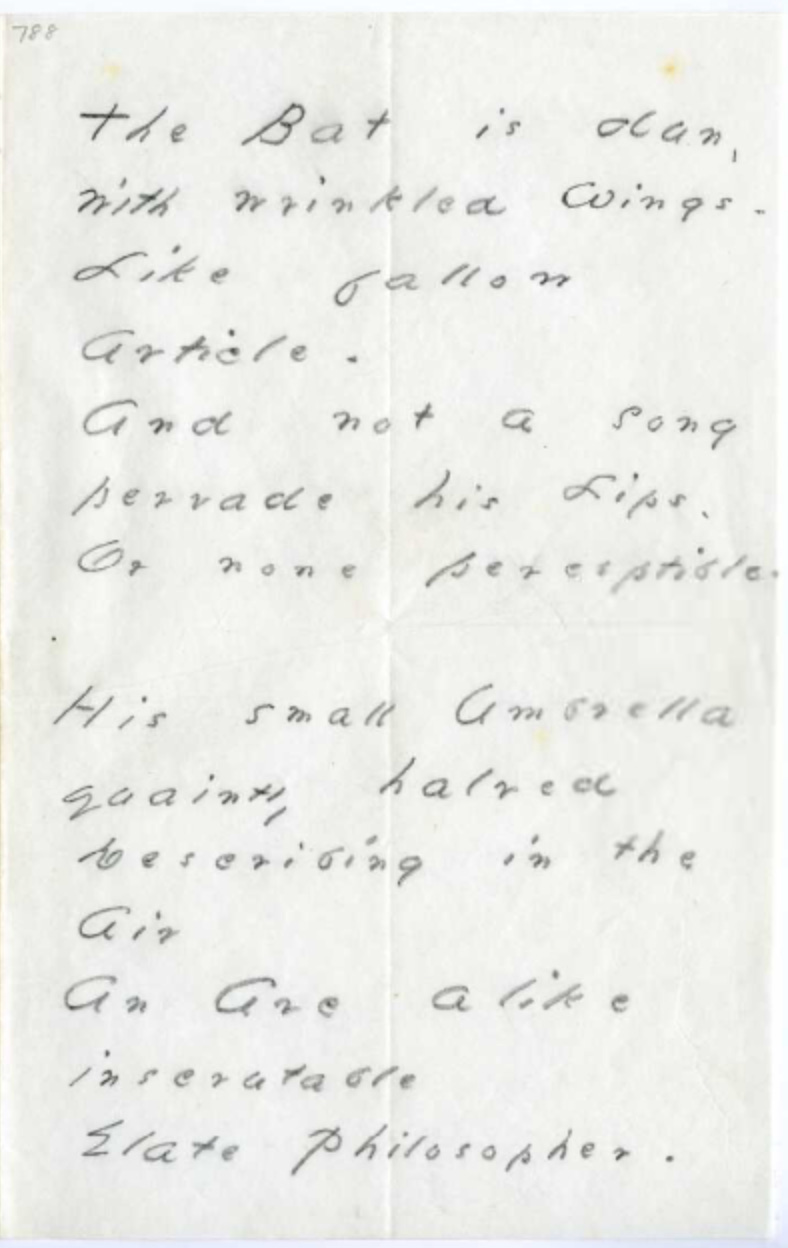 788
The Bat is dun,
with wrinkled Wings -
Like fallow
Article -
And not a song
pervade his Lips -
Or none perceptible.
His small Umbrella
quaintly halved
Describing in the
Air
An Arc alike
inscrutable
Elate Philosopher.